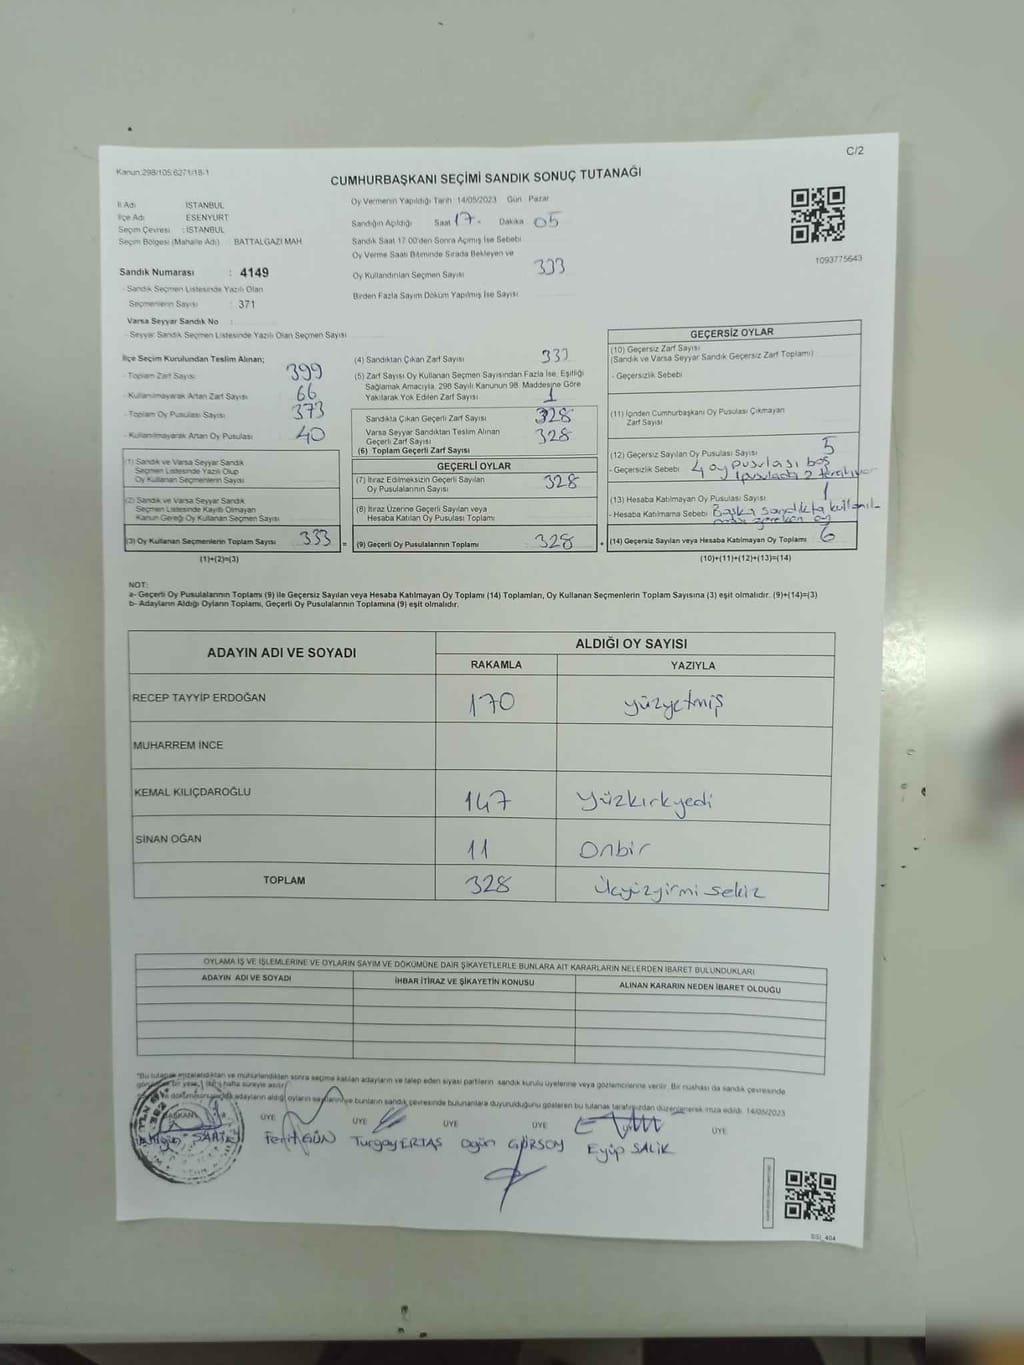 C/2
Kanun:298/105.6271/18-1
CUMHURBAŞKANI SEÇİMİ SANDIK SONUÇ TUTANAĞI
İl Adı : İSTANBUL
İlçe Adı : ESENYURT
Seçim Çevresi : İSTANBUL
Seçim Bölgesi (Mahalle Adı) : BATTALGAZİ MAH
Sandık Numarası : 4149
- Sandık Seçmen Listesinde Yazılı Olan
Seçmenlerin Sayısı : 371
Varsa Seyyar Sandık No :
- Seyyar Sandık Seçmen Listesinde Yazılı Olan Seçmen Sayısı
Oy Vermenin Yapıldığı Tarih 14/05/2023 Gün Pazar
Sandığın Açıldığı Saat 17 Dakika 05
Sandık Saat 17.00'den Sonra Açılmış İse Sebebi
Oy Verme Saati Bitiminde Sırada Bekleyen ve
Oy Kullandırılan Seçmen Sayısı 333
Birden Fazla Sayım Döküm Yapılmış İse Sayısı
1093775643
İlçe Seçim Kurulundan Teslim Alınan;
- Toplam Zarf Sayısı 399
- Kullanılmayarak Artan Zarf Sayısı 66
- Toplam Oy Pusulası Sayısı 373
- Kullanılmayarak Artan Oy Pusulası 40
(1) Sandık ve Varsa Seyyar Sandık
Seçmen Listesinde Yazılı Olup
Oy Kullanan Seçmenlerin Sayısı
(2) Sandık ve Varsa Seyyar Sandık
Seçmen Listesinde Kayıtlı Olmayan
Kanun Gereği Oy Kullanan Seçmen Sayısı
(3) Oy Kullanan Seçmenlerin Toplam Sayısı 333 =
(1)+(2)=(3)
(4) Sandıktan Çıkan Zarf Sayısı 333
(5) Zarf Sayısı Oy Kullanan Seçmen Sayısından Fazla İse, Eşitliği
Sağlamak Amacıyla, 298 Sayılı Kanunun 98. Maddesine Göre
Yakılarak Yok Edilen Zarf Sayısı 1
Sandıkta Çıkan Geçerli Zarf Sayısı 328
Varsa Seyyar Sandıktan Teslim Alınan
Geçerli Zarf Sayısı 328
(6) Toplam Geçerli Zarf Sayısı
GEÇERLİ OYLAR
(7) İtiraz Edilmeksizin Geçerli Sayılan
Oy Pusulalarının Sayısı 328
(8) İtiraz Üzerine Geçerli Sayılan veya
Hesaba Katılan Oy Pusulası Toplamı
(9) Geçerli Oy Pusulalarının Toplamı 328 +
GEÇERSİZ OYLAR
(10) Geçersiz Zarf Sayısı
(Sandık ve Varsa Seyyar Sandık Geçersiz Zarf Toplamı)
- Geçersizlik Sebebi
(11) İçinden Cumhurbaşkanı Oy Pusulası Çıkmayan
Zarf Sayısı
(12) Geçersiz Sayılan Oy Pusulası Sayısı 5
- Geçersizlik Sebebi 4 oy pusulası boş
1 pusulada 2 tercih var
(13) Hesaba Katılmayan Oy Pusulası Sayısı 1
- Hesaba Katılmama Sebebi Başka sandıkta kullanıl-
ması gereken oy
(14) Geçersiz Sayılan veya Hesaba Katılmayan Oy Toplamı 6
(10)+(11)+(12)+(13)=(14)
NOT:
a- Geçerli Oy Pusulalarının Toplamı (9) ile Geçersiz Sayılan veya Hesaba Katılmayan Oy Toplamı (14) Toplamları, Oy Kullanan Seçmenlerin Toplam Sayısına (3) eşit olmalıdır. (9)+(14)=(3)
b- Adayların Aldığı Oyların Toplamı, Geçerli Oy Pusulalarının Toplamına (9) eşit olmalıdır.
ADAYIN ADI VE SOYADI
ALDIĞI OY SAYISI
RAKAMLA YAZIYLA
RECEP TAYYİP ERDOĞAN 170 yüzyetmiş
MUHARREM İNCE
KEMAL KILIÇDAROĞLU 147 Yüzkırkyedi
SİNAN OĞAN 11 Onbir
TOPLAM 328 Üçyüzyirmi sekiz
OYLAMA İŞ VE İŞLEMLERİNE VE OYLARIN SAYIM VE DÖKÜMÜNE DAİR ŞİKAYETLERLE BUNLARA AİT KARARLARIN NELERDEN İBARET BULUNDUKLARI
ADAYIN ADI VE SOYADI İHBAR İTİRAZ VE ŞİKAYETİN KONUSU ALINAN KARARIN NEDEN İBARET OLDUĞU
"Bu tutanak imzalandıktan ve mühürlendikten sonra seçime katılan adayların ve talep eden siyasi partilerin sandık kurulu üyelerine veya gözlemcilerine verilir. Bir nüshası da sandık çevresinde
bir yere 1 (bir) hafta süreyle asılır."
adayların aldığı oyların sayılarını ve bunların sandık çevresinde bulunanlara duyurulduğunu gösteren bu tutanak tarafımızdan düzenlenerek imza edildi. 14/05/2023
BAŞKAN ÜYE ÜYE ÜYE ÜYE ÜYE
Ferit GÜN Turgay ERTAŞ Ogün GÜRSOY Eyüp SALİK
SSİ_404